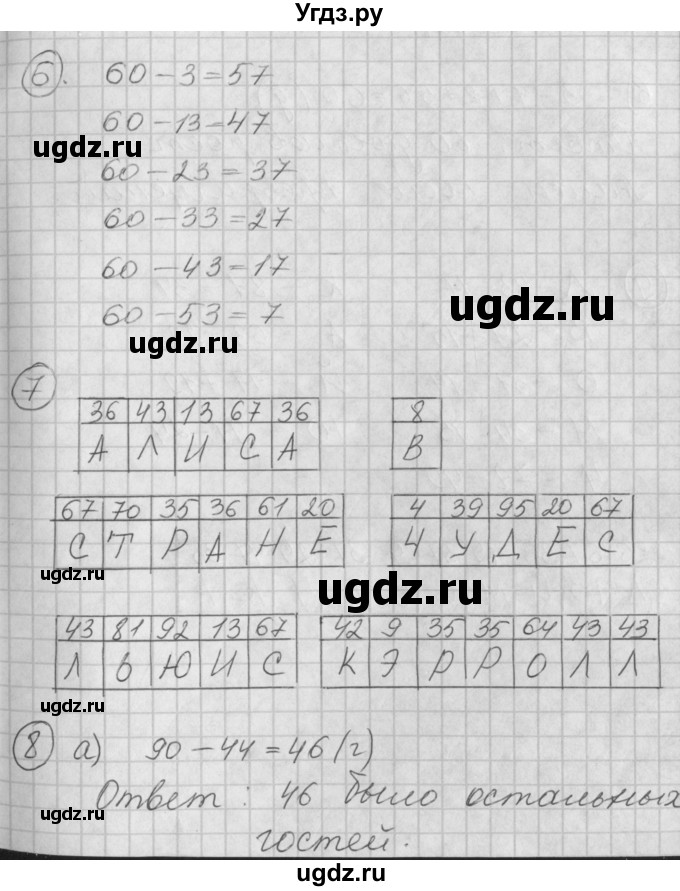 Угдз.ру
6. 60 - 3 = 57
60 - 13 = 47
ugdz.ru
60 - 23 = 37
60 - 33 = 27
60 - 43 = 17
ugdz.ru
60 - 53 = 7
ugdz.ru
7
36 43 13 67 36 8
А Л И С А В
67 70 35 36 61 20 4 39 95 20 67
С Т Р А Н Е Ч У Д Е С
ugdz.ru
ugdz.ru
43 81 92 13 67 42 9 35 35 64 43 43
Л Ь Ю И С К Э Р Р О Л Л
ugdz.ru
8 а) 90 - 44 = 46 (г)
Ответ : 46 было остальных
ugdz.ru
гостей.
ugdz.ru